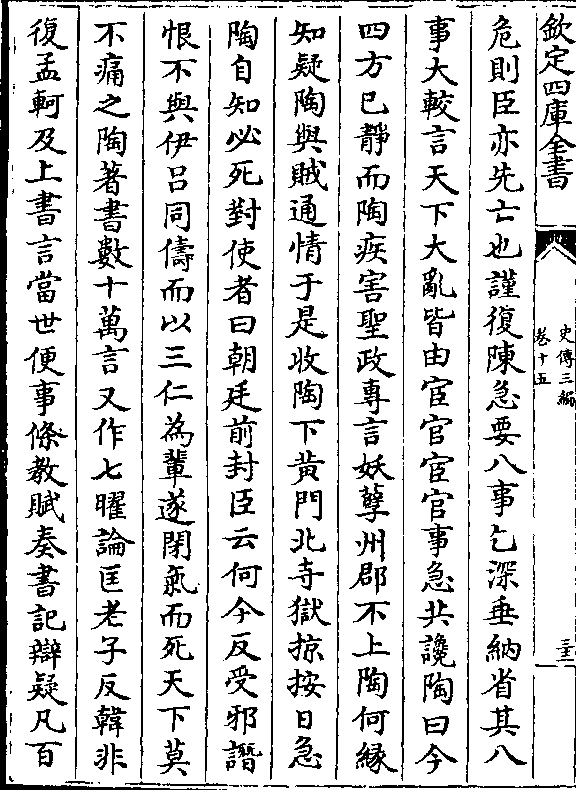 欽定四庫全書
史傳三編
卷十五
危則臣亦先亡也謹復陳急要八事乞深垂納省其八
事大較言天下大亂皆由宦官宦官事急共讒陶曰今
四方已靜而陶疾害聖政專言妖孽州郡不上陶何緣
知疑陶與賊通情于是收陶下黄門北寺獄掠按日急
陶自知必死對使者曰朝廷前封臣云何今反受邪譖
恨不與伊吕同儔而以三仁為輩遂閉氣而死天下莫
不痛之陶著書數十萬言又作七曜論匡老子反韓非
復孟軻及上書言當世便事條教賦奏書記辯疑凡百